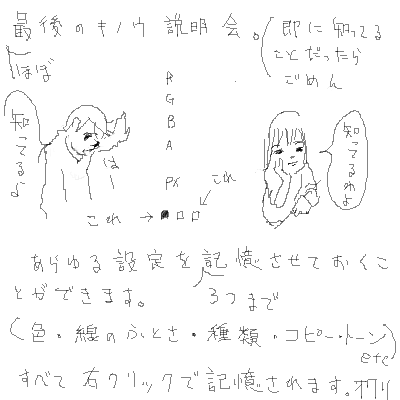 最後のキノウ説明会。
(既に知ってる
ことだったら
ごめん
ほぼ
R
G
B
A
PX
知ってるよ
はー
知ってるわよ
これ
これ→
あらゆる設定を記憶させておくこ
とができます。
3つまで
(色・線のふとさ・種類・コピー・トーン)
etc
すべて右クリックで記憶されます。オワリ